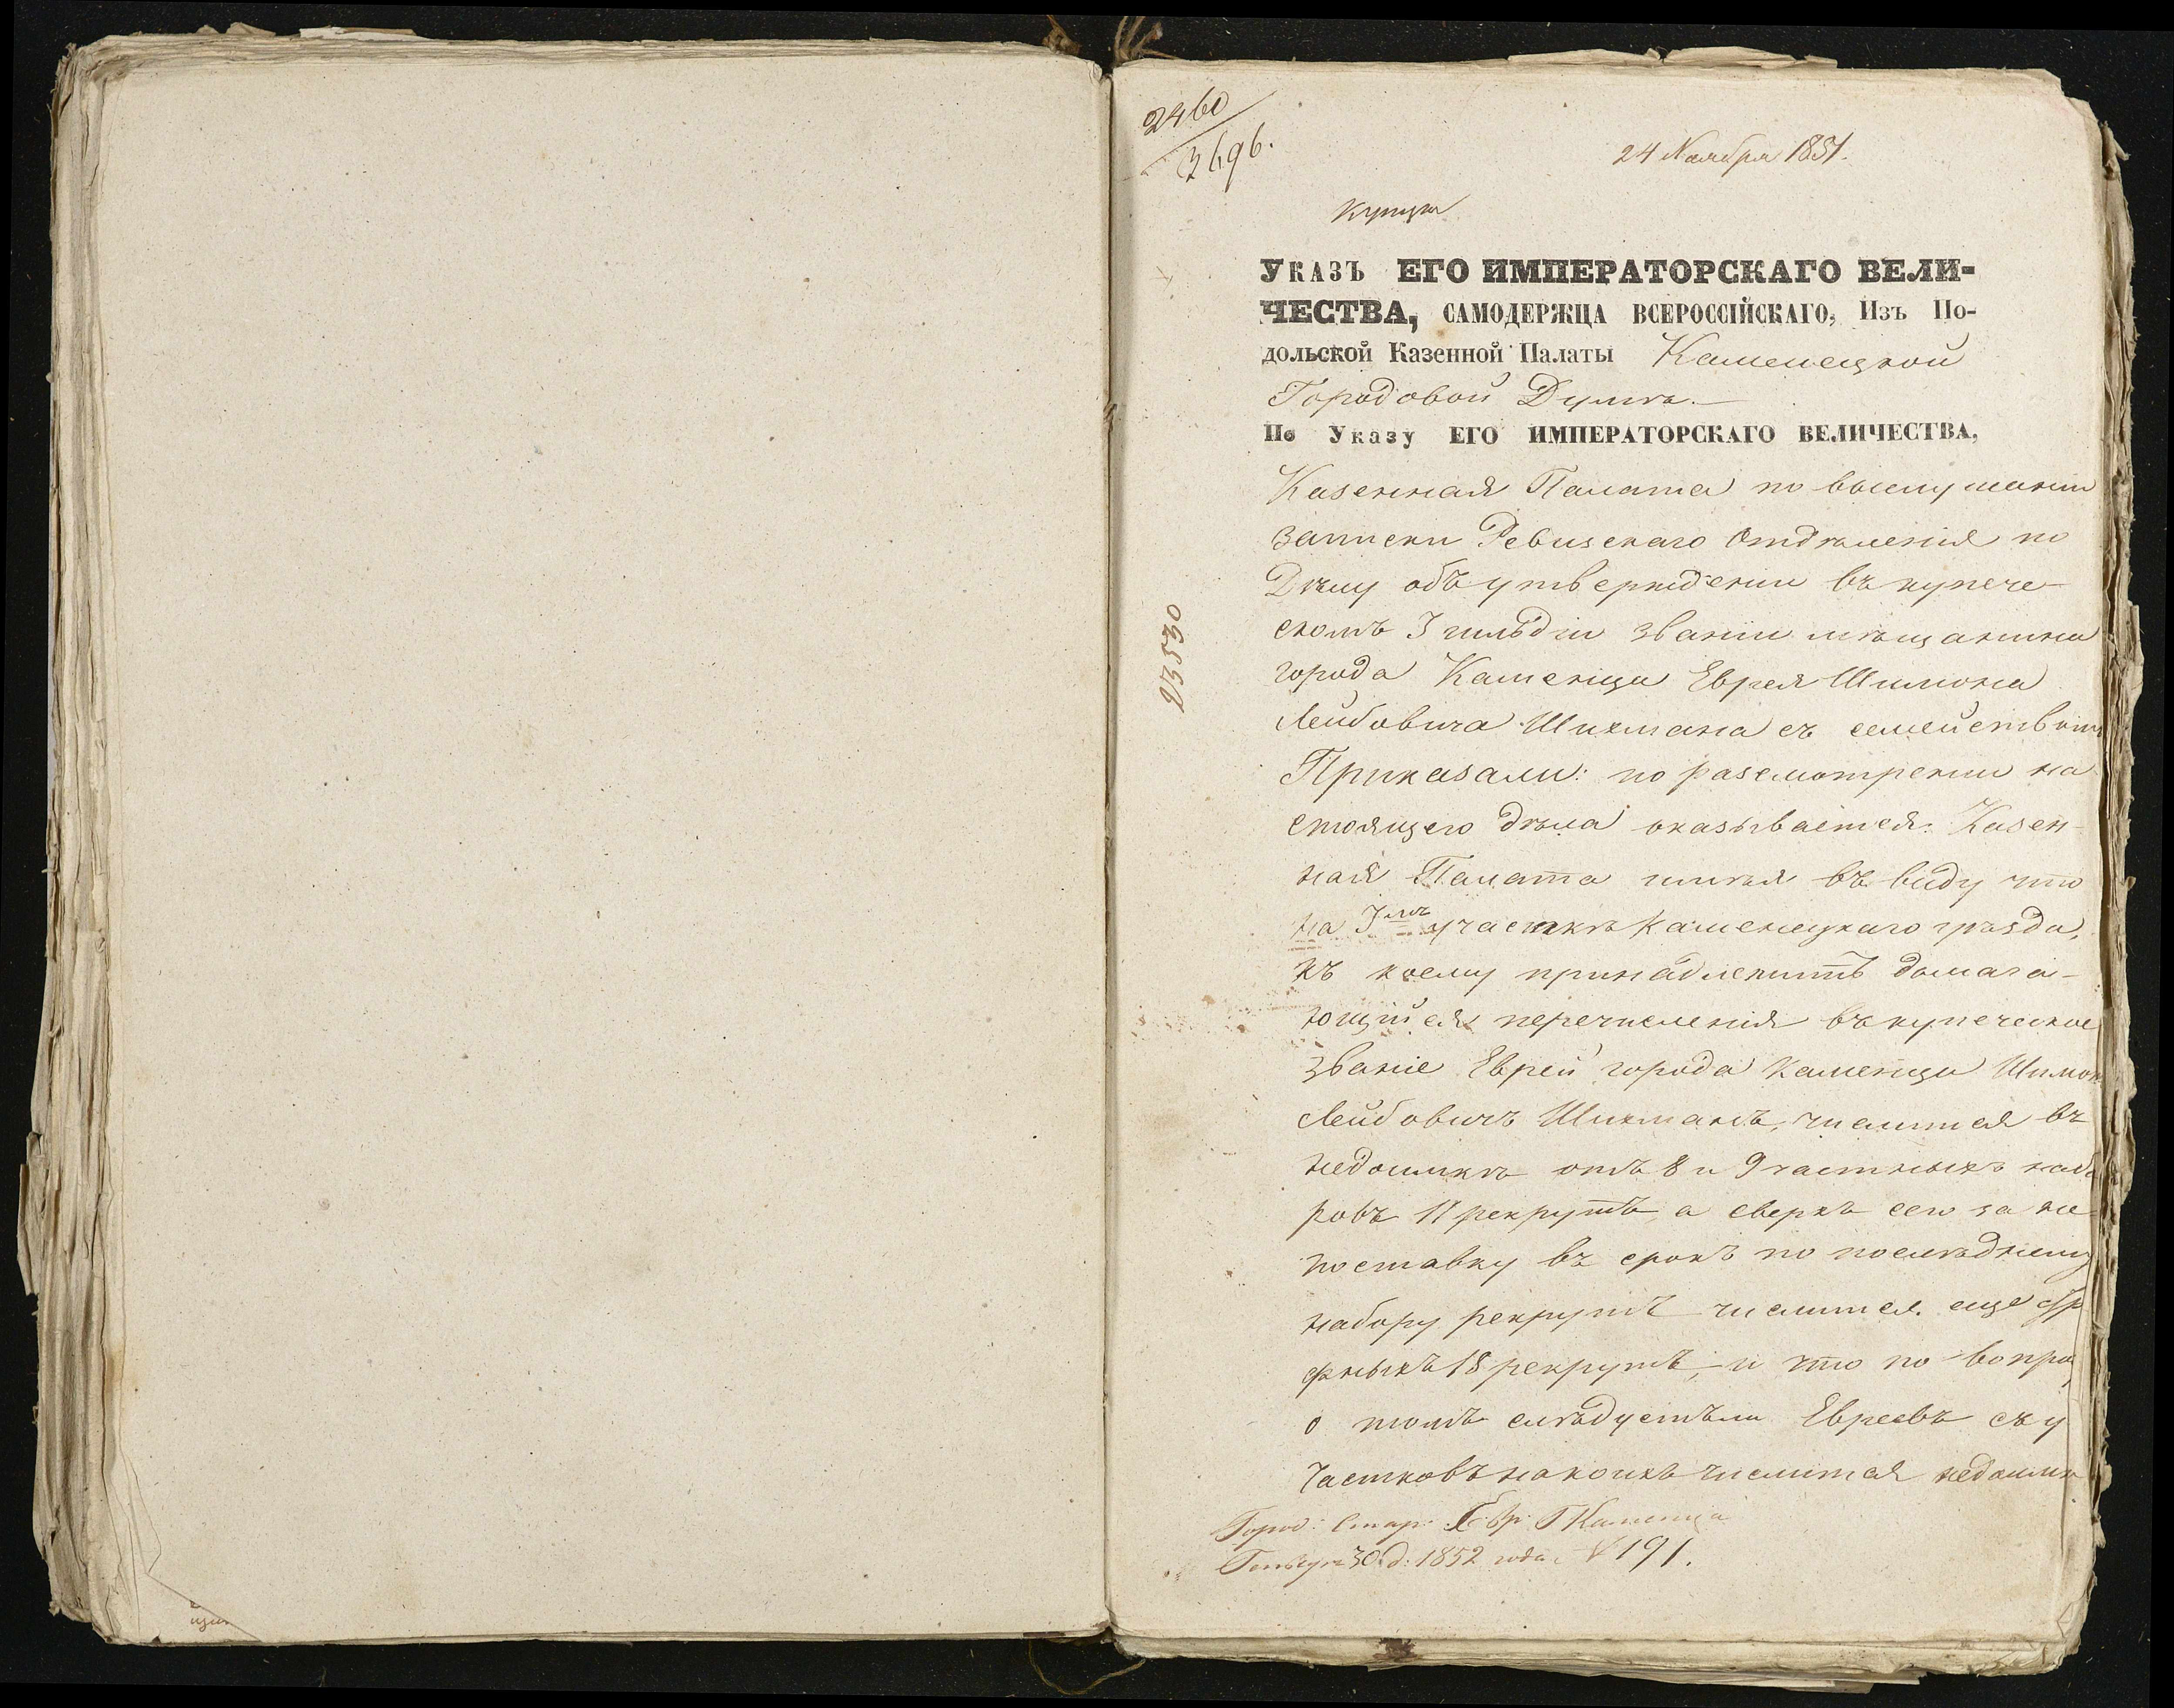 2460
3696.
24 Ноября 1851.
Купцы
Указъ ЕГО ИМПЕРАТОРСКАГО ВЕЛИ-
ЧЕСТВА, САМОДЕРЖЦА ВСЕРОССІЙСКАГО, Изъ По-
дольской Казенной Палаты Каменецкой
Городовой Думѣ.—
По Указу ЕГО ИМПЕРАТОРСКАГО ВЕЛИЧЕСТВА,
Казенная Палата по выслушаніи
записки Ревизскаго Отдѣленія по
Дѣлу объ утвержденіи въ купече-
скомъ 3 гильдіи званіи мѣщанина
города Каменца Еврея Шимона
Лейбовича Шихмана съ семействомъ
Приказали: по разсмотреніи на
стоящего дѣла оказывается: Казен-
ная Палата имѣя въ виду что
на 3мъ участкѣ Каменецкаго уѣзда,
къ коему принадлежитъ домага-
ющійся перечисленія въ купеческое
званіе Еврей города Каменца Шимон
Лейбовичъ Шихманъ, числится въ
недоимкѣ отъ 8 и 9 частныхъ набо
ровъ 11 рекрутъ, а сверхъ сего за не
поставку въ срокъ по послѣднему
набору рекрутъ числится еще штра
фныхъ 18 рекрутъ, и что по вопро
о томъ слѣдуетъ ли Евреевъ съ у
частковъ на коихъ числится недоимк
23530
Город: Стар: Евр: Г Каменца
Генваря 30 д: 1852 года № 191.